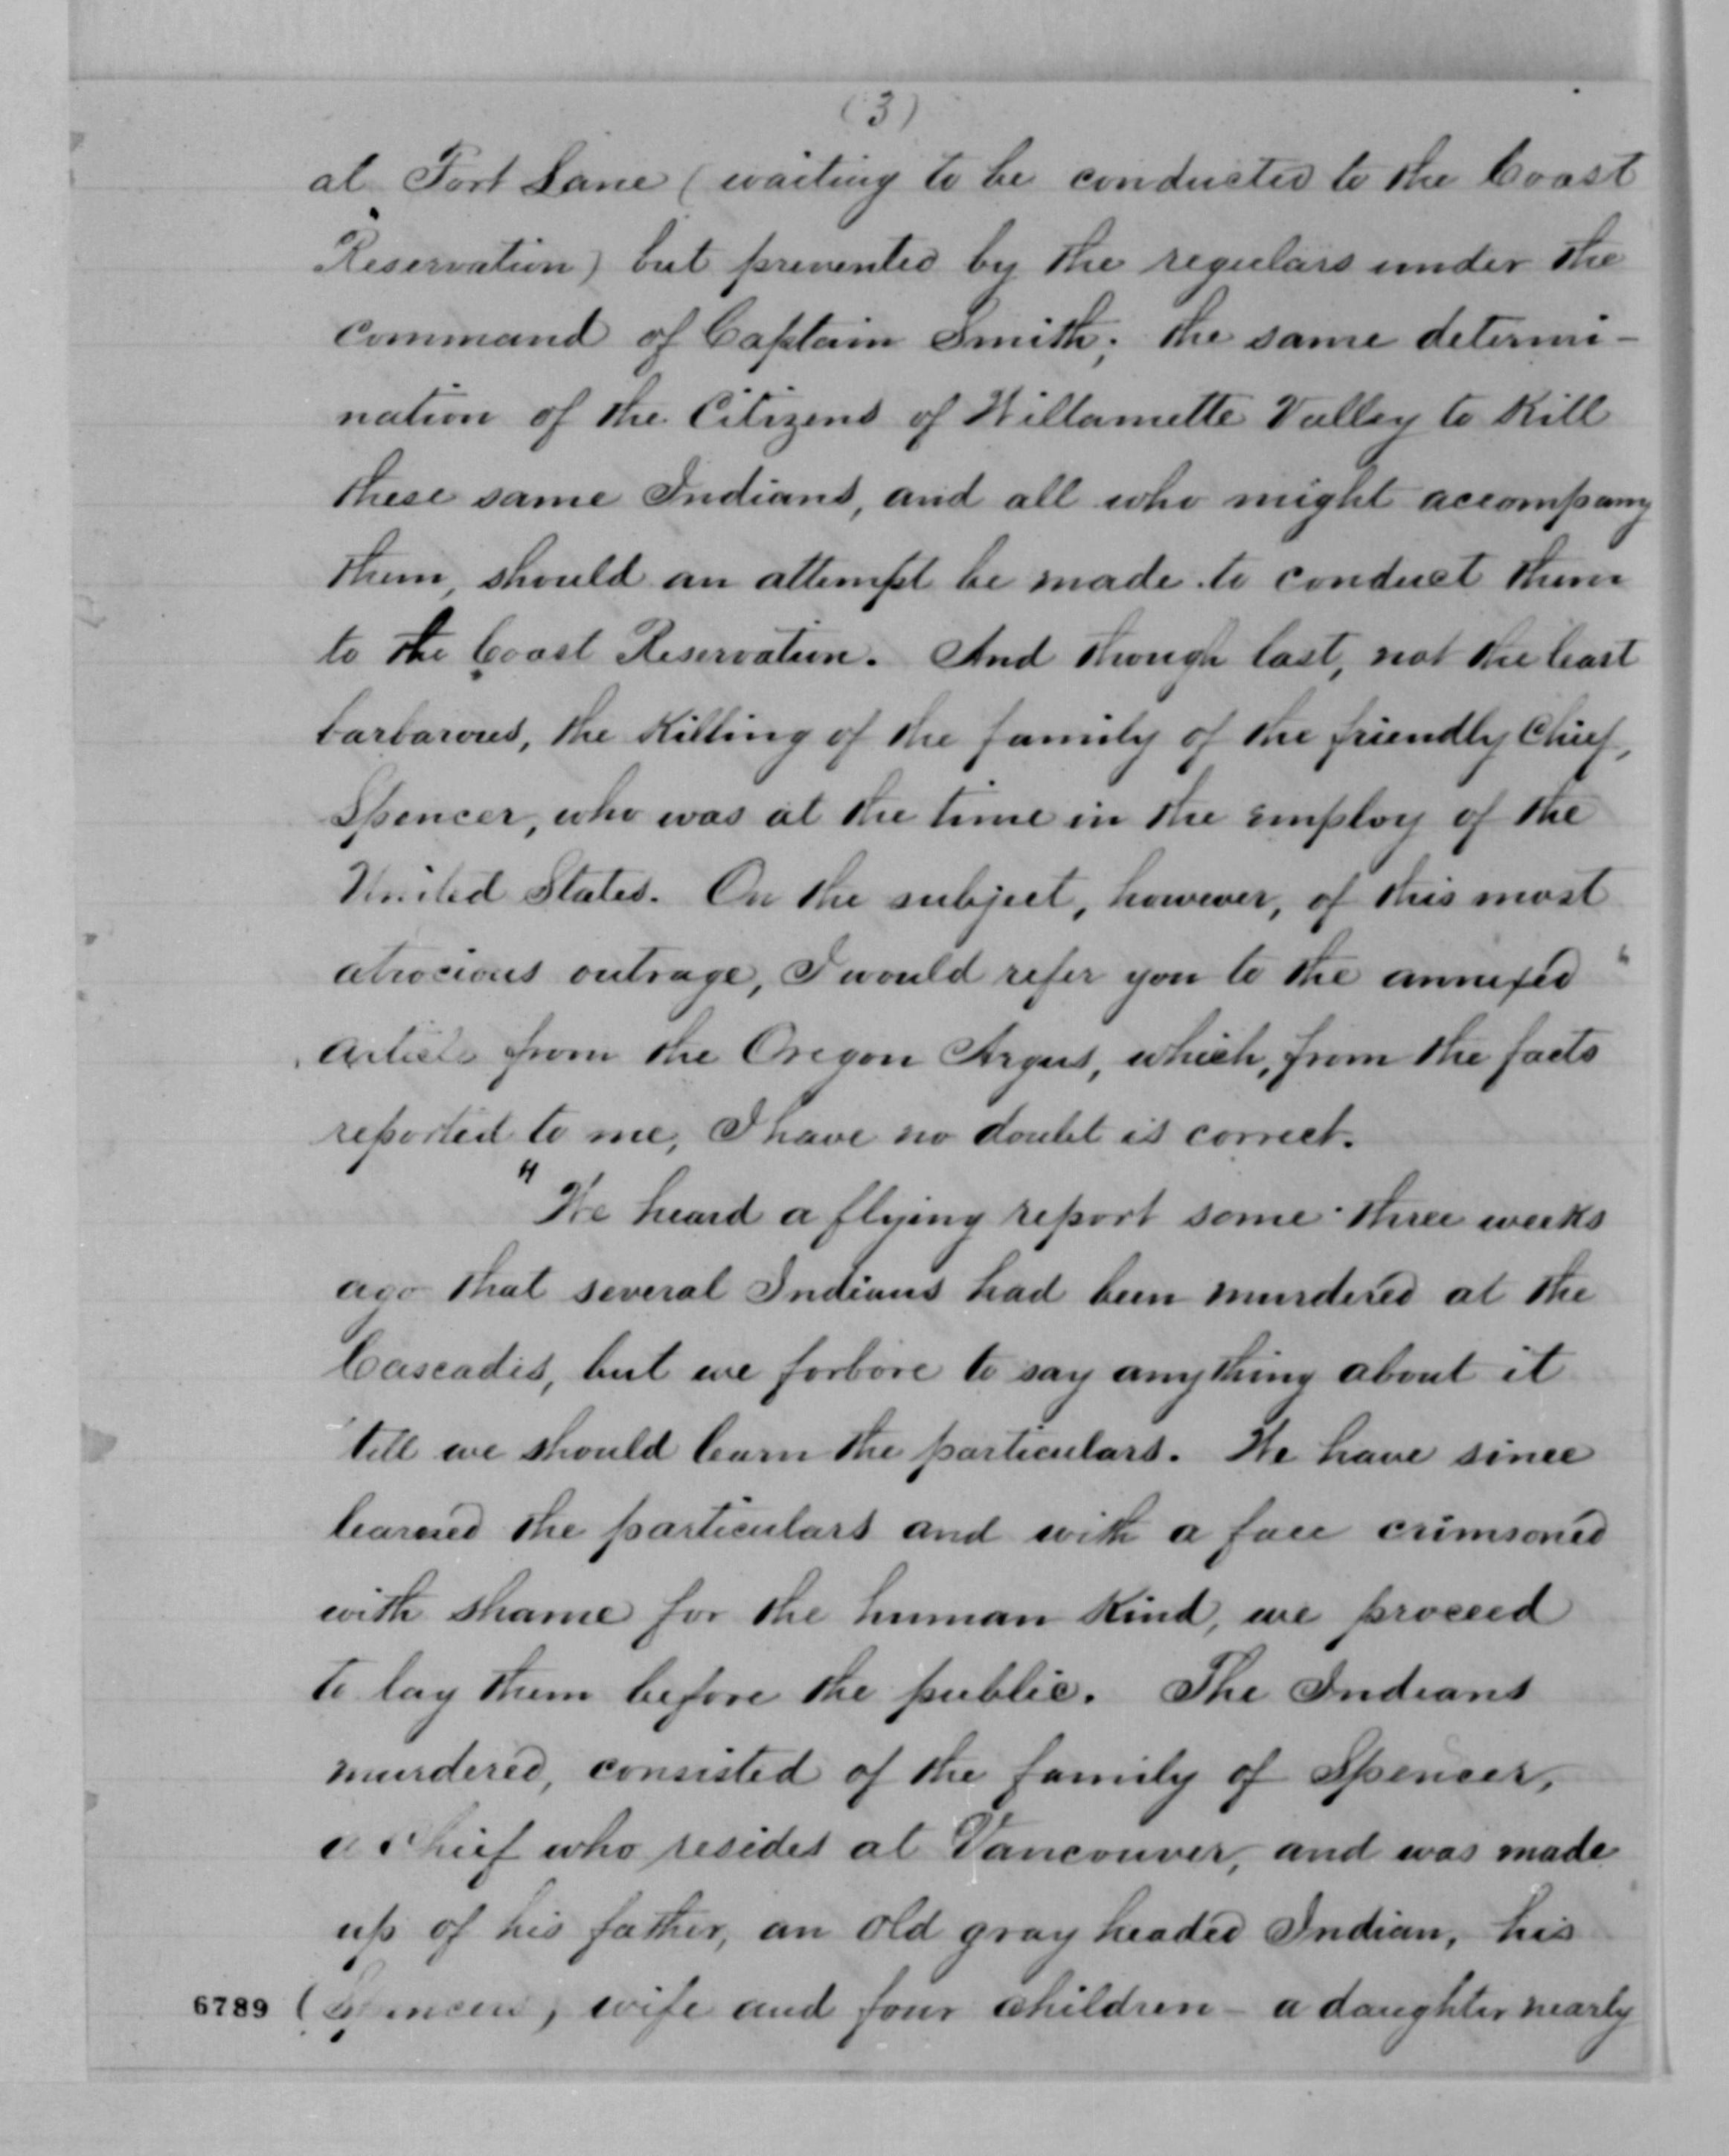 (3)
at Fort Lane (waiting to be conducted to the Coast
Reservation) but prevented by the regulars under the
command of Captain Smith; the same determi-
nation of the Citizens of Willamette Valley to Kill
these same Indians, and all who might accompany
them, should an attempt be made to conduct them
to the Coast Reservation. And though last, not the least
barbarous, the Killing of the family of the friendly Chief,
Spencer, who was at the time in the employ of the
United States. On the subject, however, of this most
atrocious outrage, I would refer you to the annexed
article from the Oregon Argus, which, from the facts
reported to me, I have no doubt is correct.
"We heard a flying report some three weeks
ago that several Indians had been murdered at the
Cascades, but we forbore to say anything about it
'till we should learn the particulars. We have since
learned the particulars and with a face crimsoned
with shame for the human Kind, we proceed
to lay them before the public. The Indians
murdered, consisted of the family of Spencer,
a Chief who resides at Vancouver, and was made
up of his father, an old gray headed Indian, his
6789 (Spencers) wife and four children - a daughter nearly